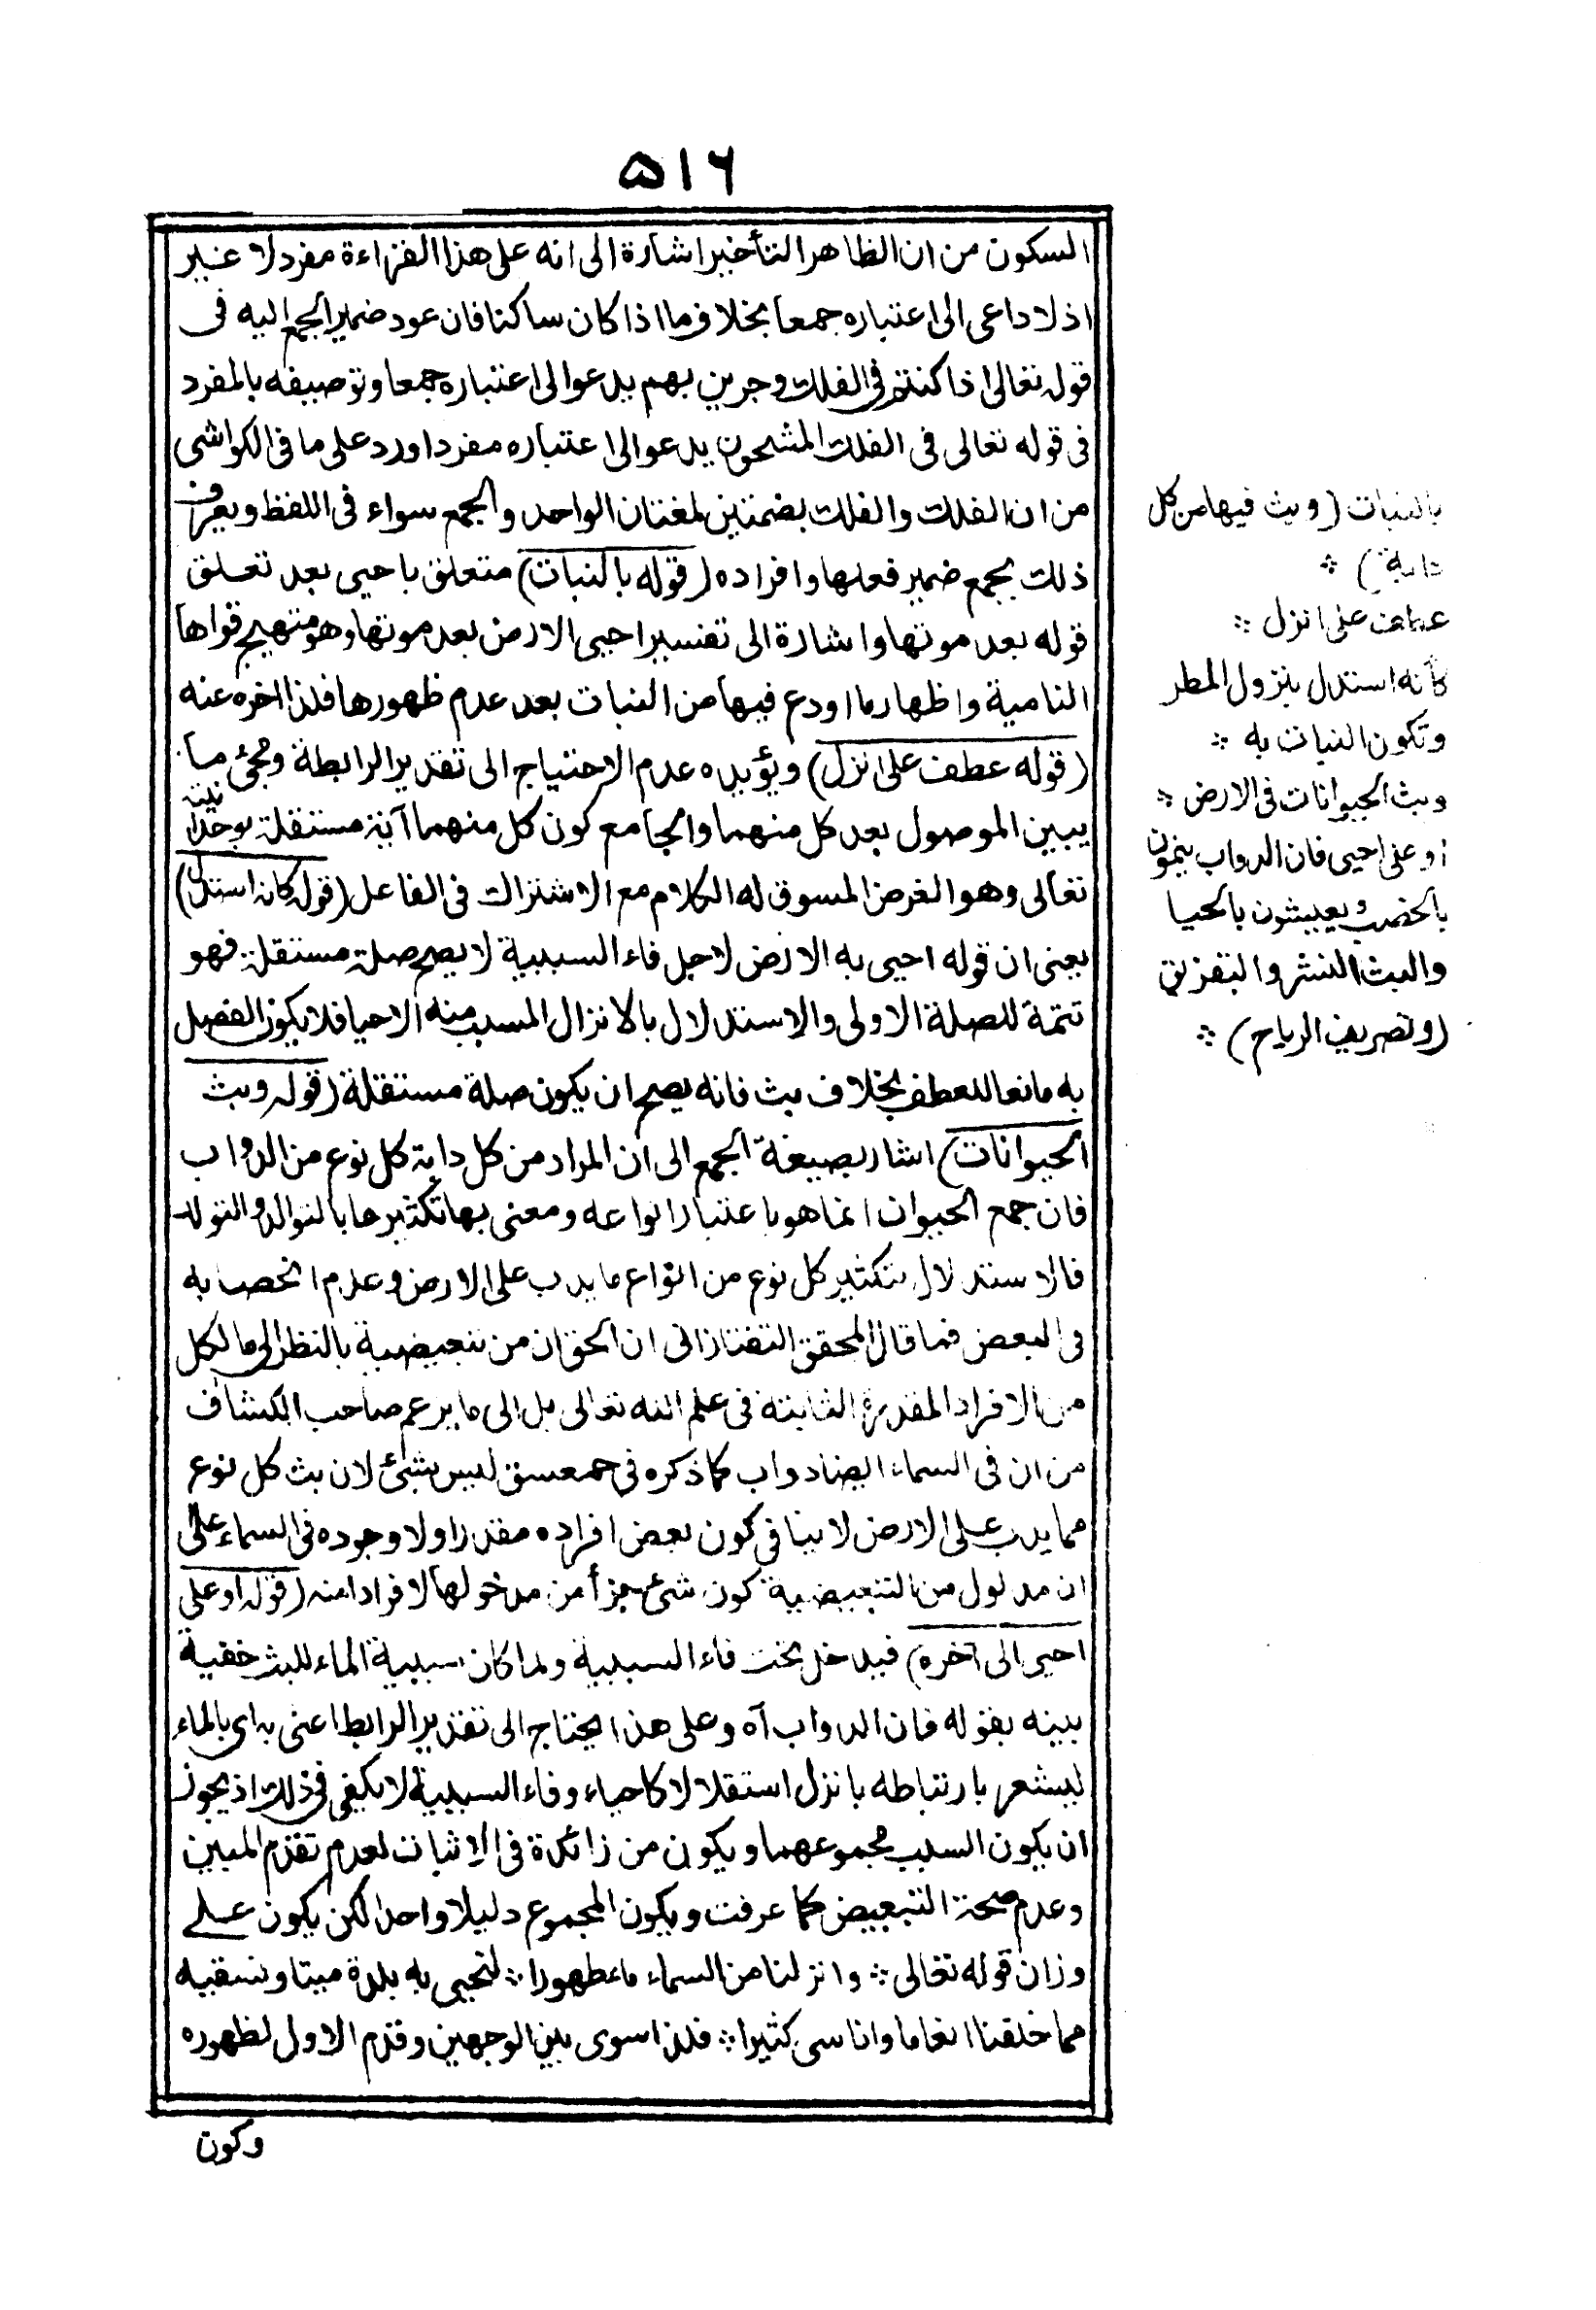 ٥١٦
السكون من ان الظاهر التأخير اشارة الى انه على هذا القراءة مفرد لا غير
اذ لا داعى الى اعتباره جمعا بخلاف ما اذا كان ساكنا فان عود ضمير الجمع اليه فى
قوله تعالى اذا كنتم فى الفلك وجرين بهم يدعو الى اعتباره جمعا وتوصيفه بالمفرد
فى قوله تعالى فى الفلك المشحون يدعو الى اعتباره مفردا ورد على ما فى الكواشى
من ان الفلك والفلك بضمتين لغتان الواحد والجمع سواء فى اللفظ ويعرف
ذلك بجمع ضمير فعلها وافراده (قوله بالنبات) متعلق باحيى بعد تعلق
قوله بعد موتها واشارة الى تفسير احيى الارض بعد موتها وهو تهييج قواها
النامية واظهار ما اودع فيها من النبات بعد عدم ظهورها فلذا اخره عنه
(قوله عطف على انزل) ويؤيده عدم الاحتياج الى تقدير الرابطة ومجئ ما
يبين الموصول بعد كل منهما والجامع كون كل منهما آية مستقلة لوحدانيته
تعالى وهو الغرض المسوق له الكلام مع الاشتراك فى الفاعل (قوله كانه استدل)
يعنى ان قوله احيى به الارض لاجل فاء السببية لا يصح صلة مستقلة فهو
تتمة للصلة الاولى والاستدلال بالانزال المسبب منه الاحيا فلا يكون الفصل
به مانعا للعطف بخلاف بث فانه يصح ان يكون صلة مستقلة (قوله وبث
الحيوانات) اشار بصيغة الجمع الى ان المراد من كل دابة كل نوع من الدواب
فان جمع الحيوان انما هو باعتبار انواعه ومعنى بها تكثيرها بالتوالد والتولد
فالاستدلال بتكثير كل نوع من انواع ما يدب على الارض وعدم انحصاره
فى البعض فما قال المحقق التفتازانى ان الحق ان من تبعيضية بالنظر الى ما لكل
من الافراد المقدرة الثابتة فى علم الله تعالى بل الى ما يزعم صاحب الكشاف
من ان فى السماء ايضا دواب كما ذكره فى حمعسق ليس بشئ لان بث كل نوع
مما يدب على الارض لا ينافى كون بعض افراده مقدرا ولا وجوده فى السماء على
ان مدلول من التبعيضية كون شئ جزأ من مدخولها لا فرادا منه (قوله او على
احيى الى آخره) فيدخل تحت فاء السببية ولما كان سببية الماء للبث خفية
بينه بقوله فان الدواب آه وعلى هذا يحتاج الى تقدير الرابط اعنى به اى بالماء
ليشعر بارتباطه بانزل استقلالا كاحياء وفاء السببية لا يكفى فى ذلك اذ يجوز
ان يكون السبب مجموعهما ويكون من زائدة فى الاثبات لعدم تقدم المبين
وعدم صحة التبعيض كما عرفت ويكون المجموع دليلا واحدا لكن يكون على
وزان قوله تعالى ❊ وانزلنا من السماء ماء طهورا ❊ لنحيى به بلدة ميتا ونسقيه
مما خلقنا انعاما واناسى كثيرا ❊ فلذا سوى بين الوجهين وقدم الاول لظهوره
وكون
بالنبات (وبث فيها من كل
دابة) ❊
عطف على انزل ❊
كأنه استدل بنزول المطر
وتكون النبات به ❊
وبث الحيوانات فى الارض ❊
او على احيى فان الدواب ينمون
بالخصب ويعيشون بالحيا
والبث النشر والتفريق
(وتصريف الرياح) ❊